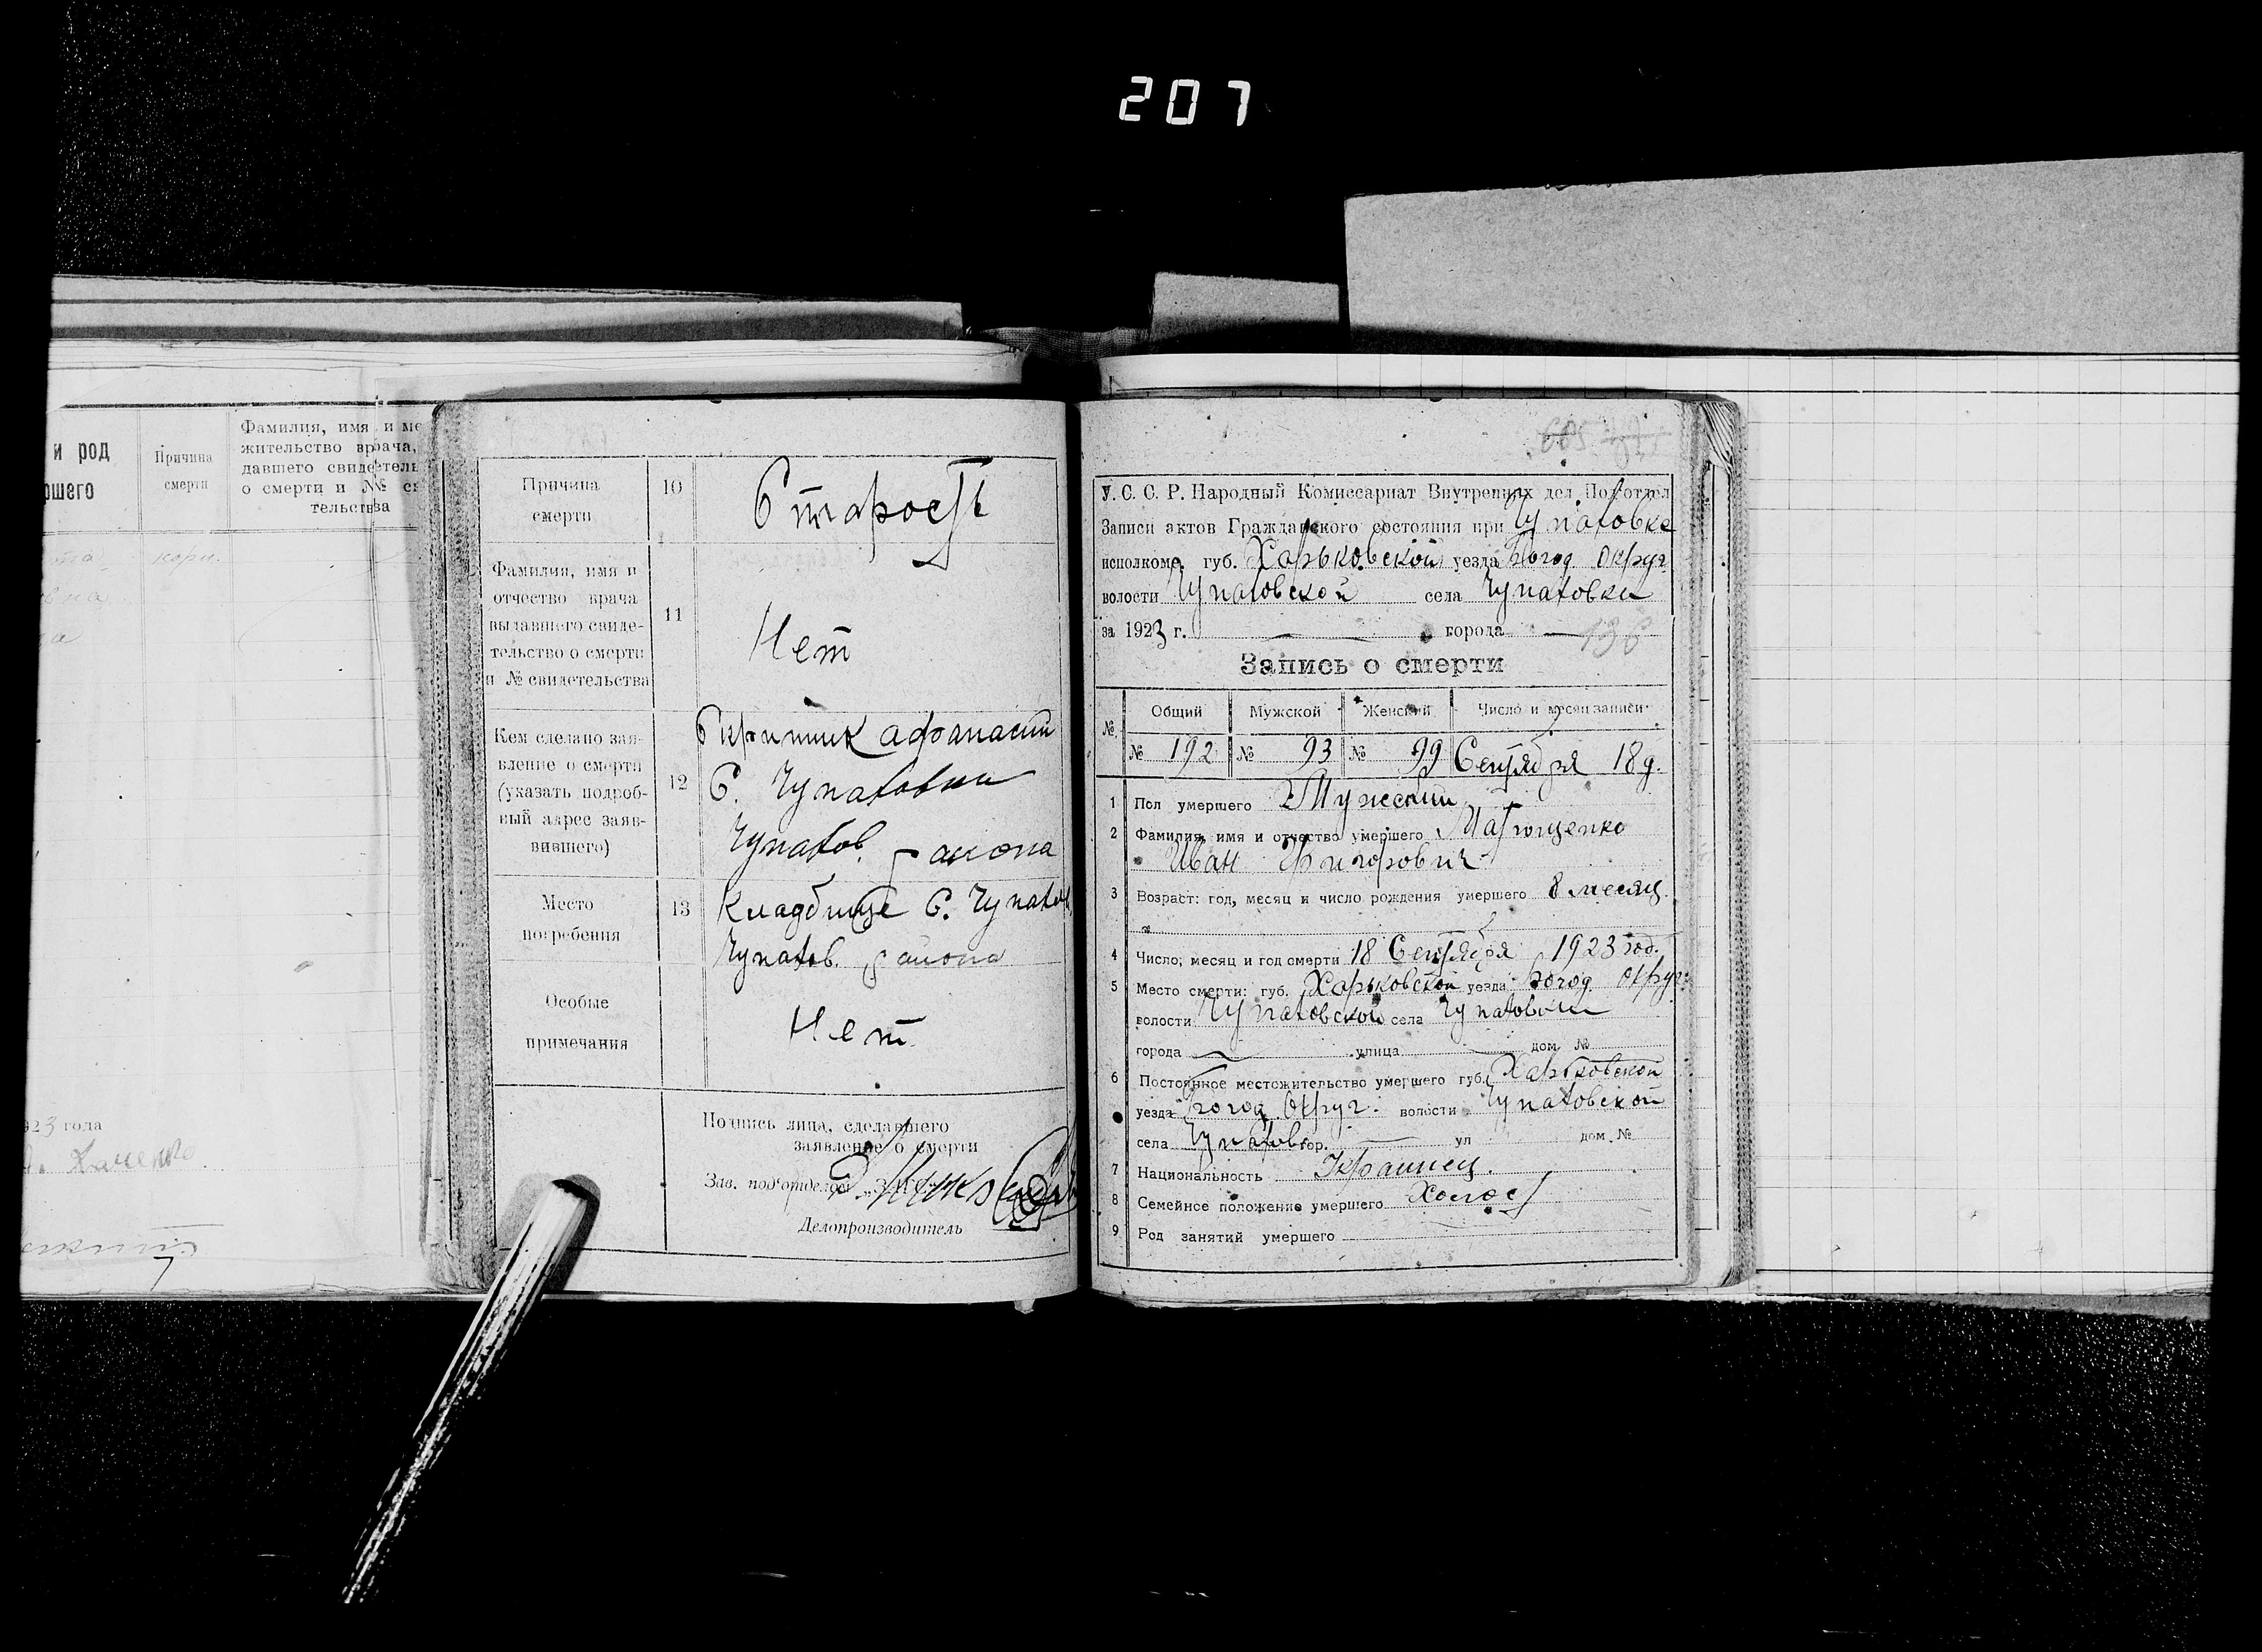 207
и род
ршего
Причина
смерти
Фамилия, имя и ме
жительство врача,
давшего свидетель
о смерти и № св
тельства
кори.
923 года
Причина
смерти
10
Старость
Фамилия, имя и
отчество врача
выдавшего свиде-
тельство о смерти
и № свидетельства
11
Нет
Кем сделано зая-
вление о смерти
(указать подроб-
ный адрес заяв-
вившего)
12
Скрипник Афанасий
С. Чупаховки
Чупахов. района
Место
погребения
13
Кладбище С. Чупахов
Чупахов. района
Особые
примечания
Нет
Подпись лица, сделавшего
заявление о смерти
Зав. под'отделом
Делопроизводитель
605
У. С. С. Р. Народный Комиссариат Внутренних дел, Под'отдел
Записи актов Гражданского состояния при Чупаховке
исполкоме. губ. Харьковской уезда Богод округ
волости Чупаховской села Чупаховки
за 1923 г. города
136
Запись о смерти
№ Общий Мужской Женский Число и месяц записи
№ 192 № 93 № 99 Сентября 18 д.
1 Пол умершего Мужеский
2 Фамилия, имя и отчество умершего Матющенко
Иван Григорович
3 Возраст: год, месяц и число рождения умершего 8 месяц.
4 Число, месяц и год смерти 18 Сентября 1923 год.
5 Место смерти: губ. Харьковской уезда Богод округ
волости Чупаховской села Чупаховки
города улица дом №
6 Постоянное местожительство умершего губ. Харьковской
уезда Богод Округ. волости Чупаховской
села Чупаховк гор. ул дом №
7 Национальность Украинец.
8 Семейное положение умершего Холост
9 Род занятий умершего